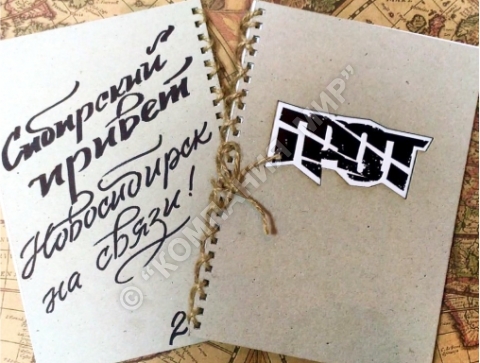 Сибирский
привет
Новосибирск
на связи!
2
ГРОТ
© "КОМПАНИЯ МИР"